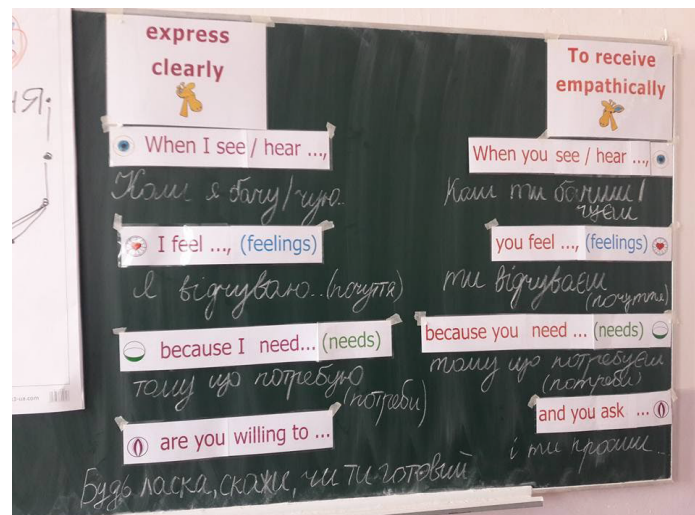 НЯ:
express
clearly
When I see / hear ...,
Коли я бачу/чую..
I feel ..., (feelings)
Я відчуваю..(почуття)
because I need... (needs)
тому що потребую
(потреби)
are you willing to ...
Будь ласка, скажи, чи ти готовий
To receive
empathically
When you see / hear ...,
Коли ти бачиш/
чуєш
you feel ..., (feelings)
ти відчуваєш
(почуття)
because you need ... (needs)
тому що потребуєш
(потреби)
and you ask ...
і ти просиш..